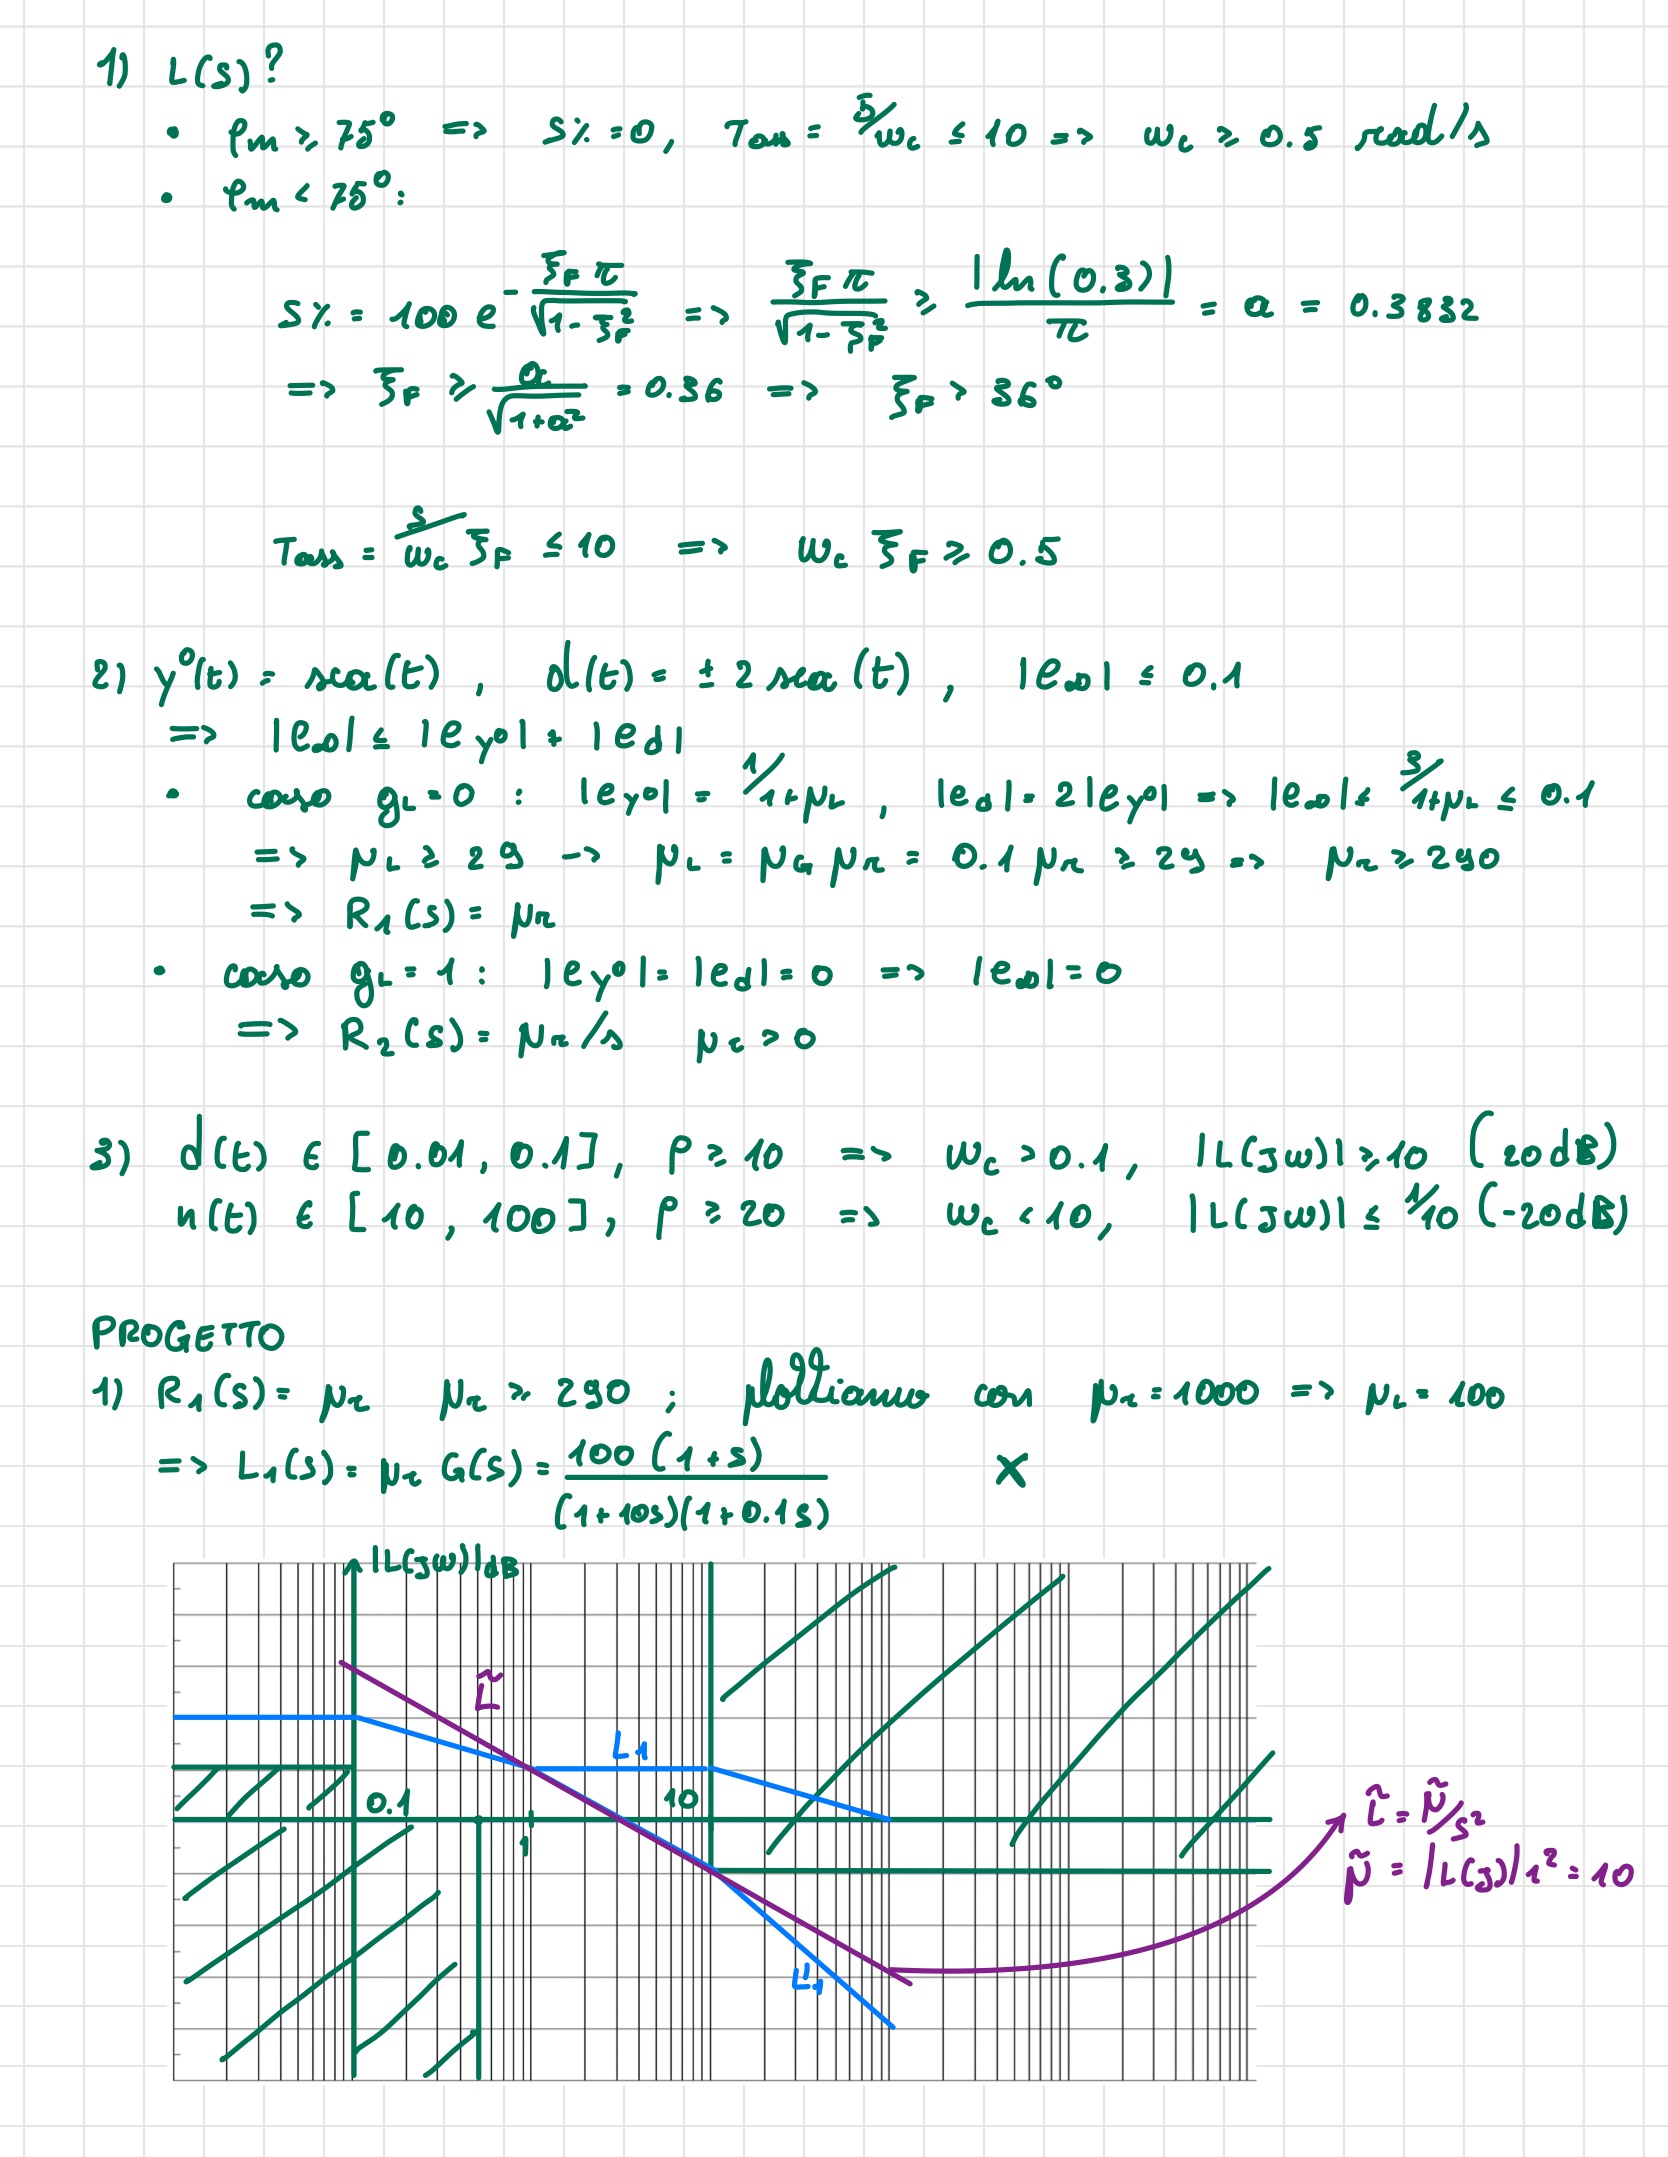 1) L(s)?
• φm ≥ 75° => S% = 0, Tass = 5/ωc ≤ 10 => ωc ≥ 0.5 rad/s
• φm < 75°:
S% = 100 e^(-ξF π / √(1-ξF²)) => ξF π / √(1-ξF²) ≥ |ln(0.3)| / π = a = 0.3832
=> ξF ≥ a / √(1+a²) = 0.36 => ξF > 36°
Tass = 5/ωc ξF ≤ 10 => ωc ξF ≥ 0.5
2) y°(t) = sca(t), d(t) = ± 2 sca(t), |e∞| ≤ 0.1
=> |e∞| ≤ |ey°| + |ed|
• caso gL = 0 : |ey°| = 1/1+μL, |ed| = 2|ey°| => |e∞| ≤ 3/1+μL ≤ 0.1
=> μL ≥ 29 -> μL = μG μr = 0.1 μr ≥ 29 => μr ≥ 290
=> R1(s) = μr
• caso gL = 1 : |ey°| = |ed| = 0 => |e∞| = 0
=> R2(s) = μr/s μr > 0
3) d(t) ∈ [0.01, 0.1], ρ ≥ 10 => ωc > 0.1, |L(jω)| ≥ 10 (20dB)
n(t) ∈ [10, 100], ρ ≥ 20 => ωc < 10, |L(jω)| ≤ 1/10 (-20dB)
PROGETTO
1) R1(s) = μr μr ≥ 290 ; plottiamo con μr = 1000 => μL = 100
=> L1(s) = μr G(s) = 100 (1+s) / (1+10s)(1+0.1s) X
|L(jω)|dB
L̃
L1
0.1
10
1
L̃ = μ̃/s²
μ̃ = |L(j)|1² = 10
L'1